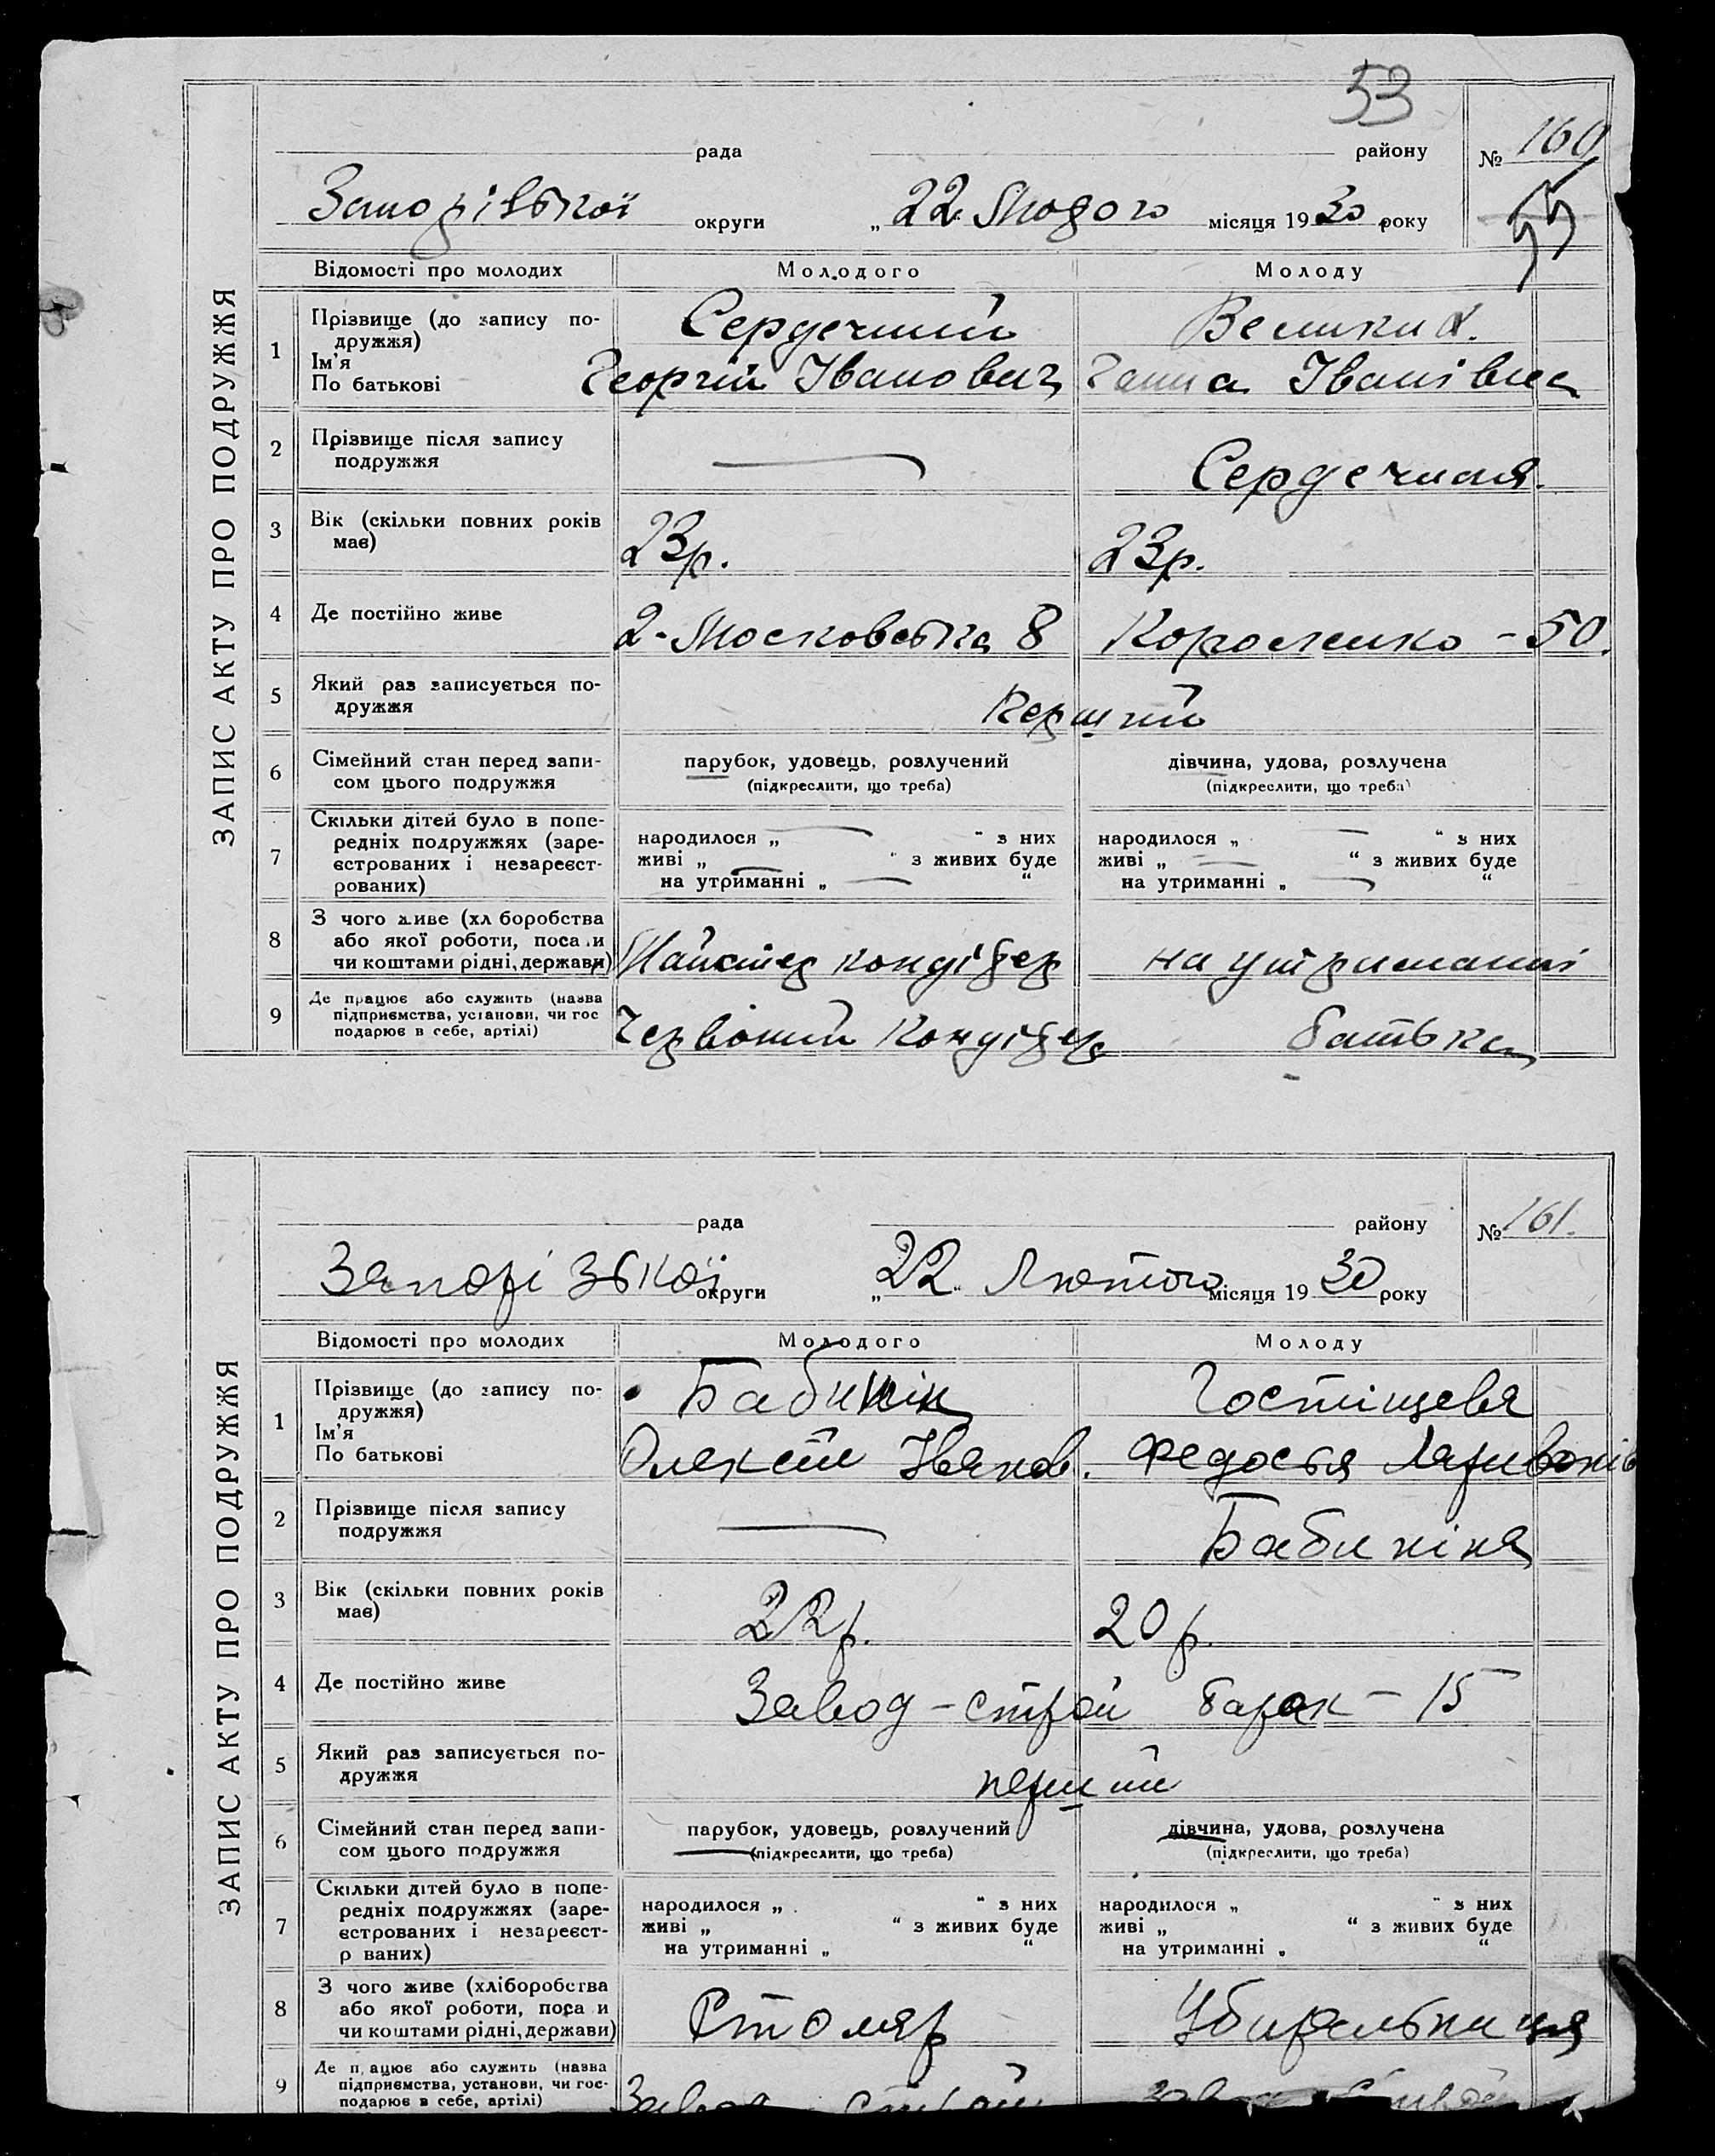 53
рада району № 160
Запорізької округи „22" Лютого місяця 1930 року
55
ЗАПИС АКТУ ПРО ПОДРУЖЖЯ
Відомості про молодих Молодого Молоду
1 Прізвище (до запису по-
дружжя) Сердечний Велика.
Ім'я
По батькові Георгій Іванович Ганна Іванівна
2 Прізвище після запису
подружжя — Сердечная.
3 Вік (скільки повних років
має) 23р. 23р.
4 Де постійно живе 2-Московська 8 Короленко - 50.
5 Який раз записується по-
дружжя Перший
6 Сімейний стан перед запи- парубок, удовець, розлучений дівчина, удова, розлучена
сом цього подружжя (підкреслити, що треба) (підкреслити, що треба)
7 Скільки дітей було в попе-
редніх подружжях (заре- народилося „ — " з них народилося „ — " з них
єстрованих і незареєст- живі „ — " з живих буде живі „ — " з живих буде
рованих) на утриманні „ — " на утриманні „ — "
8 З чого живе (хл боробства
або якої роботи, поса и
чи коштами рідні, держави) Майстер кондітер на утриманні
9 Де працює або служить (назва
підприємства, установи, чи гос
подарює в себе, артілі) Червоний Кондітер батька
рада району № 161.
Запорізької округи „22" Лютого місяця 1930 року
ЗАПИС АКТУ ПРО ПОДРУЖЖЯ
Відомості про молодих Молодого Молоду
1 Прізвище (до запису по-
дружжя) Бабикін Гостіщева
Ім'я
По батькові Олексій Іванов. Федосья Ларивонів
2 Прізвище після запису
подружжя — Бабикіна
3 Вік (скільки повних років
має) 22р. 20р.
4 Де постійно живе Завод-строй барак - 15
5 Який раз записується по-
дружжя перший
6 Сімейний стан перед запи- парубок, удовець, розлучений дівчина, удова, розлучена
сом цього подружжя (підкреслити, що треба) (підкреслити, що треба)
7 Скільки дітей було в попе-
редніх подружжях (заре- народилося „ " з них народилося „ " з них
єстрованих і незареєст- живі „ " з живих буде живі „ " з живих буде
р ваних) на утриманні „ " на утриманні „ "
8 З чого живе (хліборобства
або якої роботи, поса и
чи коштами рідні, держави) Столяр Убиральниця
9 Де п ацює або служить (назва
підприємства, установи, чи гос-
подарює в себе, артілі) Завод - строй